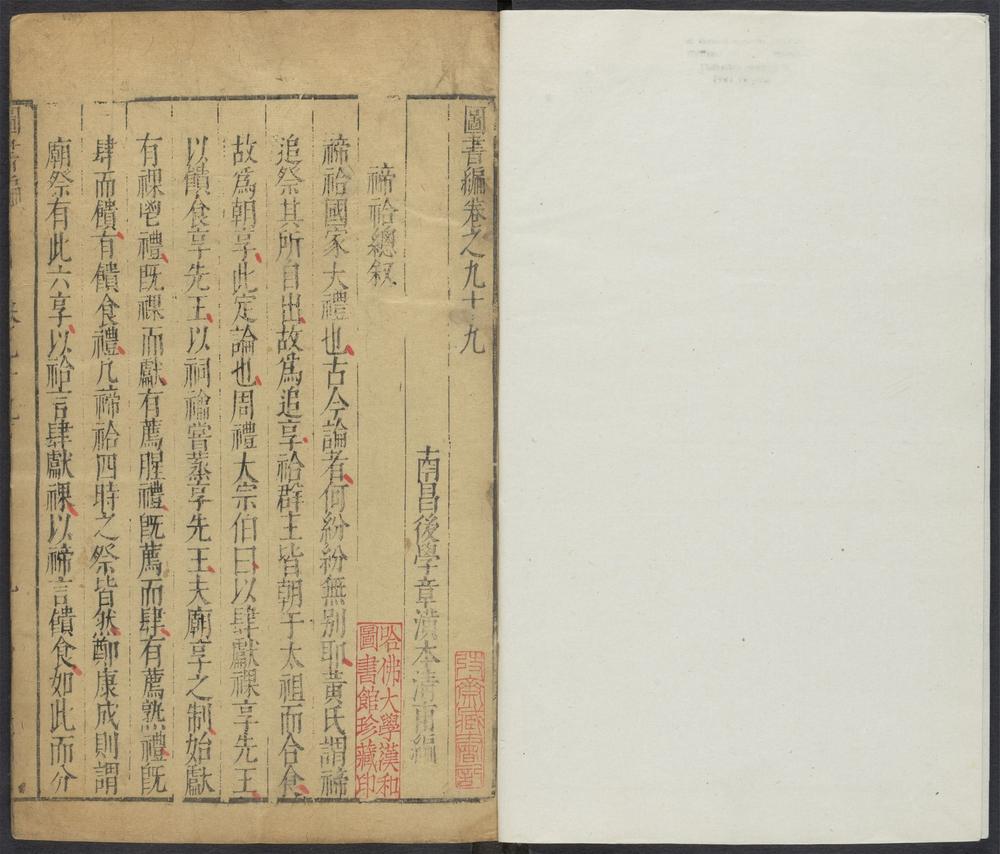 圖書編卷之九十九
南昌後學章潢本清甫編
禘祫總叙
禘祫國家大禮也古今論者何紛紛無別耶黃氏謂禘
追祭其所自出故爲追享祫群主皆朝于太祖而合食
故爲朝享此定論也周禮大宗伯曰以肆獻祼享先王
以饋食享先王以祠禴嘗蒸享先王夫廟享之制始獻
有祼鬯禮旣祼而獻有薦腥禮旣薦而肆有薦熟禮旣
肆而饋有饋食禮凡禘祫四時之祭皆然鄭康成則謂
廟祭有此六享以祫言肆獻祼以禘言饋食如此而分
圖書編
哈佛大學漢和
圖書館珍藏印